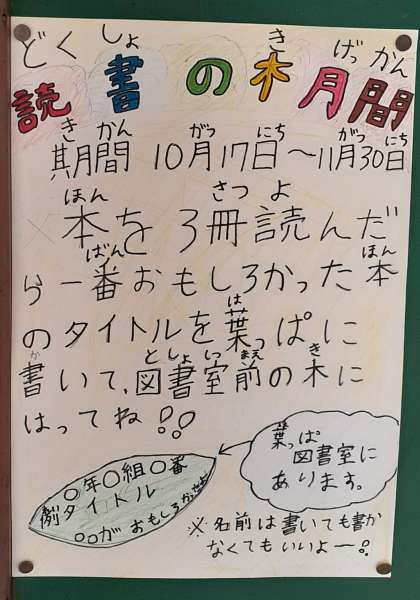 読書の木月間
どくしょ き げっかん
期間 10月17日〜11月30日
きかん がつ にち がつ にち
本を3冊読んだ
ほん さつ よ
ら一番おもしろかった本
ばん ほん
のタイトルを葉っぱに
は
書いて、図書室前の木に
か としょしつまえ き
はってね!!
葉っぱ
図書室に
あります。
○年○組○番
例 タイトル
○○がおもしろかったよ
※名前は書いても書か
なくてもいいよー!